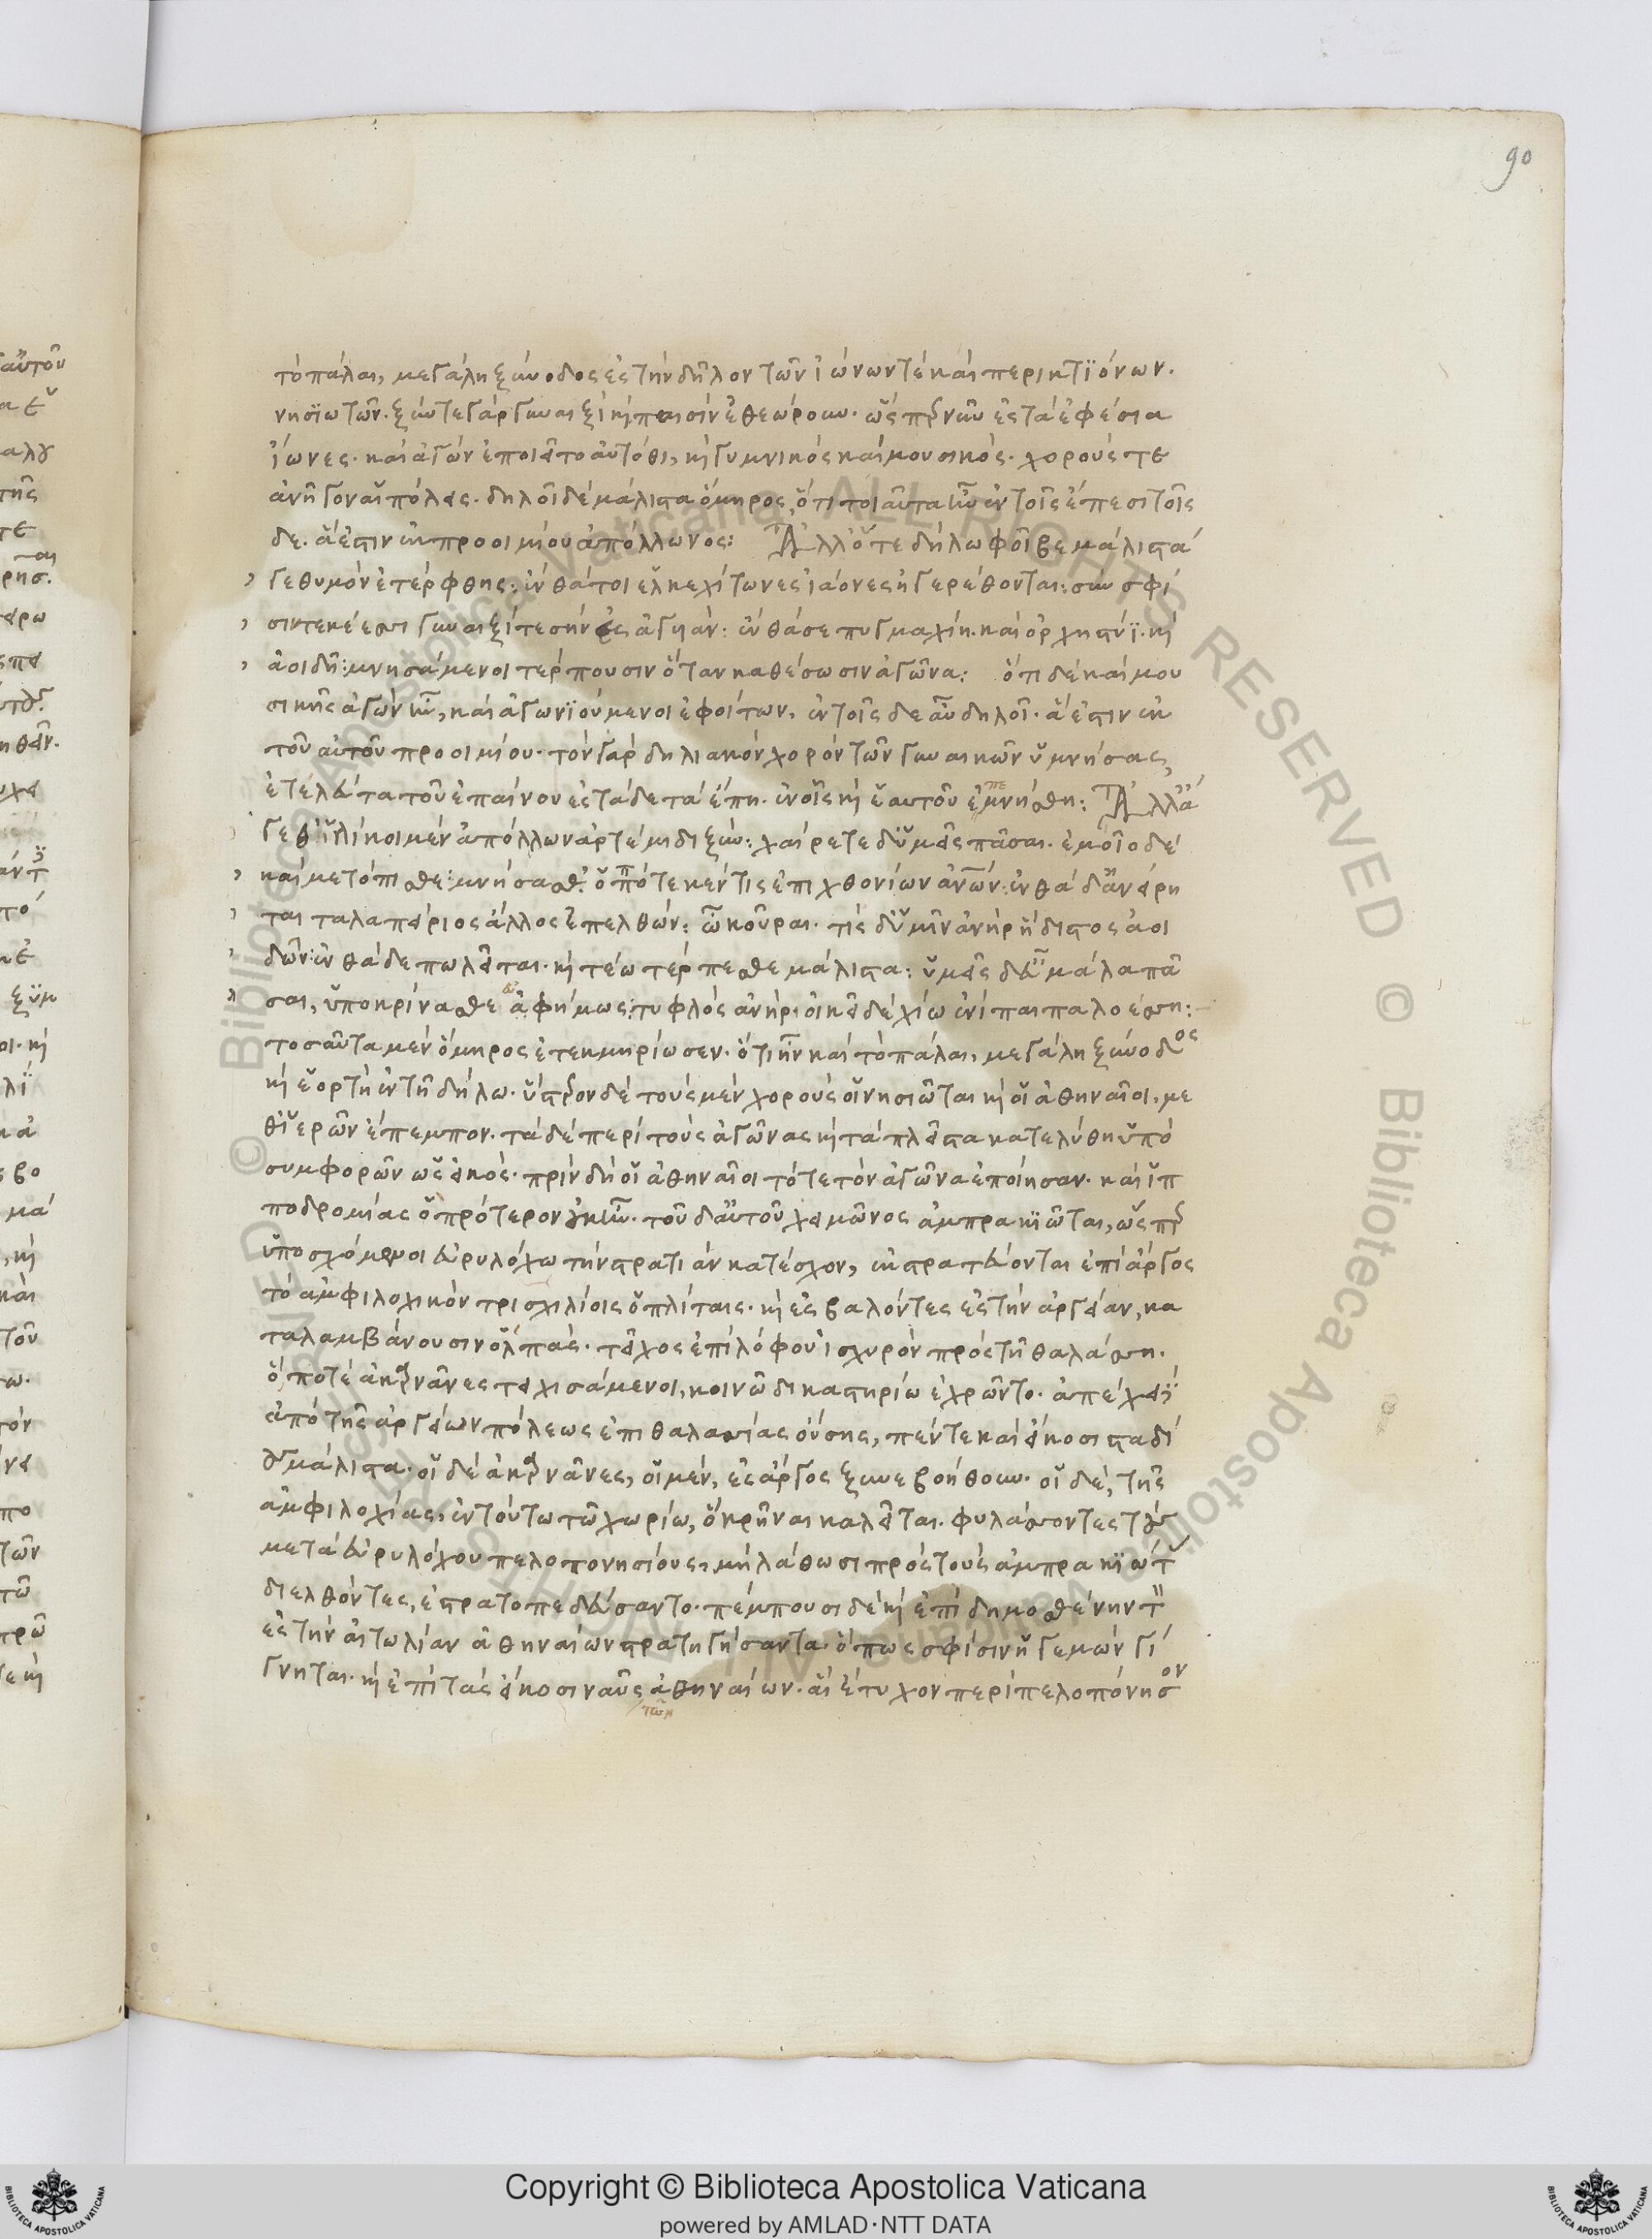 90
τὸ πάλαι, μεγάλη ξύνοδος ἐς τὴν δῆλον τῶν ἰώνων τὲ καὶ περικτϊόνων.
νησϊωτῶν. ξύν τε γὰρ γυναιξὶ κὶ παισὶν ἐθεώρουν. ὥσπερ νῦν ἐς τὰ ἐφέσια
ἴωνες. καὶ ἀγὼν ἐποιεῖτο αὐτόθι, κὶ γυμνικὸς καὶ μουσικός. χορούς τε
ἀνῆγον αἱ πόλεις. δηλοῖ δὲ μάλιστα ὅμηρος, ὅτι τοιαῦτα ἦν ἐν τοῖς ἔπεσι τοῖς
δε. ἅ ἐστιν ἐκ προοιμίου ἀπόλλωνος: Ἀλλ' ὅτε δήλω φοῖβε μάλιστά
γε θυμὸν ἐτέρφθης: ἔνθά τοι ἑλκεχίτωνες ἰάονες ἠγερέθονται: σὺν σφί
σιν τεκέεσσι γυναιξί τε σὴν ἐς ἀγυιάν: ἔνθά σε πυγμαχίη. καὶ ὀρχηστύϊ. κὶ
ἀοιδῆ: μνησάμενοι τέρπουσιν ὅταν καθέσωσιν ἀγῶνα: ὅτι δὲ καὶ μου
σικῆς ἀγὼν ἦν, καὶ ἀγωνϊούμενοι ἐφοίτων, ἐν τοῖς δε αὖ δηλοῖ. ἅ ἐστιν ἐκ
τοῦ αὐτοῦ προοιμίου. τὸν γὰρ δηλιακὸν χορὸν τῶν γυναικῶν ὑμνήσας,
ἐτελεύτα τοῦ ἐπαίνου ἐς τάδε τὰ ἔπη. ἐν οἷς κὶ ἑαυτοῦ ἐπεμνήσθη: Ἀλλά
γε θ' ἱλήκοι μὲν ἀπόλλων ἀρτέμιδι ξύν: χαίρετε δ' ὑμεῖς πᾶσαι. ἐμοῖο δέ
καὶ μετόπισθε: μνήσασθ' ὁππότε κέν τις ἐπιχθονίων ἀνων: ἐνθάδ' ἀνείρη
ται ταλαπείριος ἄλλος ἐπελθών: ὦ κοῦραι. τίς δ' ὑμῖν ἀνὴρ ἥδιστος ἀοι
δῶν: ἐνθάδε πωλεῖται. κὶ τέω τέρπεσθε μάλιστα: ὑμεῖς δ' εὖ μάλα πᾶ
σαι, ὑποκρίνασθε ἀφήμως: τυφλὸς ἀνήρ. οἰκεῖ δὲ χίω ἐνὶ παιπαλοέσση:
τοσαῦτα μὲν ὅμηρος ἐτεκμηρίωσεν. ὅτι ἦν καὶ τὸ πάλαι, μεγάλη ξύνοδος
κὶ ἑορτὴ ἐν τῆ δήλω. ὕστερον δὲ τοὺς μὲν χοροὺς οἱ νησιῶται κὶ οἱ ἀθηναῖοι, με
θ' ἱερῶν ἔπεμπον. τὰ δὲ περὶ τοὺς ἀγῶνας κὶ τὰ πλεῖστα κατελύθη ὑπὸ
συμφορῶν ὡς εἰκός. πρὶν δὴ οἱ ἀθηναῖοι τότε τὸν ἀγῶνα ἐποίησαν. καὶ ἱπ
ποδρομίας ὃ πρότερον οὐκ ἦν. τοῦ δ' αὐτοῦ χειμῶνος ἀμπρακϊῶται, ὥσπερ
ὑποσχόμενοι εὐρυλόχω τὴν στρατιὰν κατέσχον, ἐκστρατεύονται ἐπὶ ἄργος
τὸ ἀμφιλοχικὸν τρισχιλίοις ὁπλίταις. κὶ ἐσβαλόντες ἐς τὴν ἀργείαν, κα
ταλαμβάνουσιν ὄλπας. τεῖχος ἐπὶ λόφου ἰσχυρὸν πρὸς τῆ θαλάσση.
ὅ ποτὲ ἀκαρνᾶνες τειχισάμενοι, κοινῶ δικαστηρίω ἐχρῶντο. ἀπέχει
ἀπὸ τῆς ἀργείων πόλεως ἐπιθαλασσίας οὔσης, πέντε καὶ εἴκοσι σταδί
ους μάλιστα. οἱ δὲ ἀκαρνᾶνες, οἱ μέν, ἐς ἄργος ξυνεβοήθουν. οἱ δέ, τῆς
ἀμφιλοχίας, ἐν τούτω τῶ χωρίω, ὃ κρῆναι καλεῖται. φυλάσσοντες τοὺς
μετὰ εὐρυλόχου πελοπονησίους, μὴ λάθωσι πρὸς τοὺς ἀμπρακϊώτ
διελθόντες, ἐστρατοπεδεύσαντο. πέμπουσι δὲ κὶ ἐπὶ δημοσθένην τ
ἐς τὴν αἰτωλίαν ἀθηναίων στρατηγήσαντα. ὅπως σφίσιν ἡγεμὼν γί
γνηται. κὶ ἐπὶ τὰς εἴκοσι ναῦς ἀθηναίων. αἳ ἔτυχον περὶ πελοπόνησον
τῶν
Copyright © Biblioteca Apostolica Vaticana
powered by AMLAD·NTT DATA